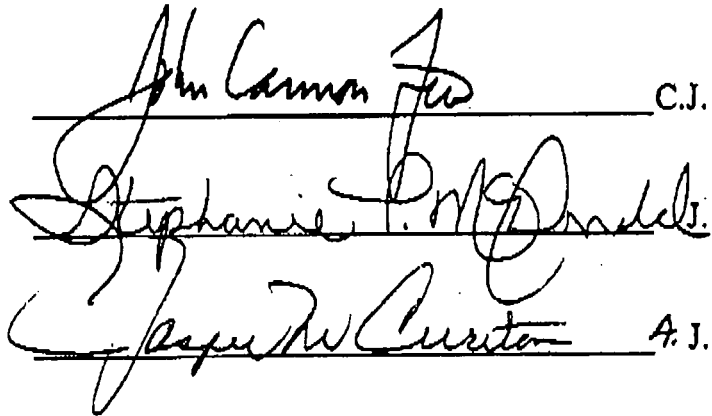 John Cannon Few C.J.
Stephanie P. McDonald J.
Jasper M Cureton A. J.